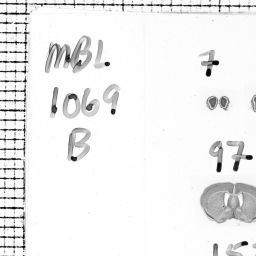 MBL
1069
B
7
97